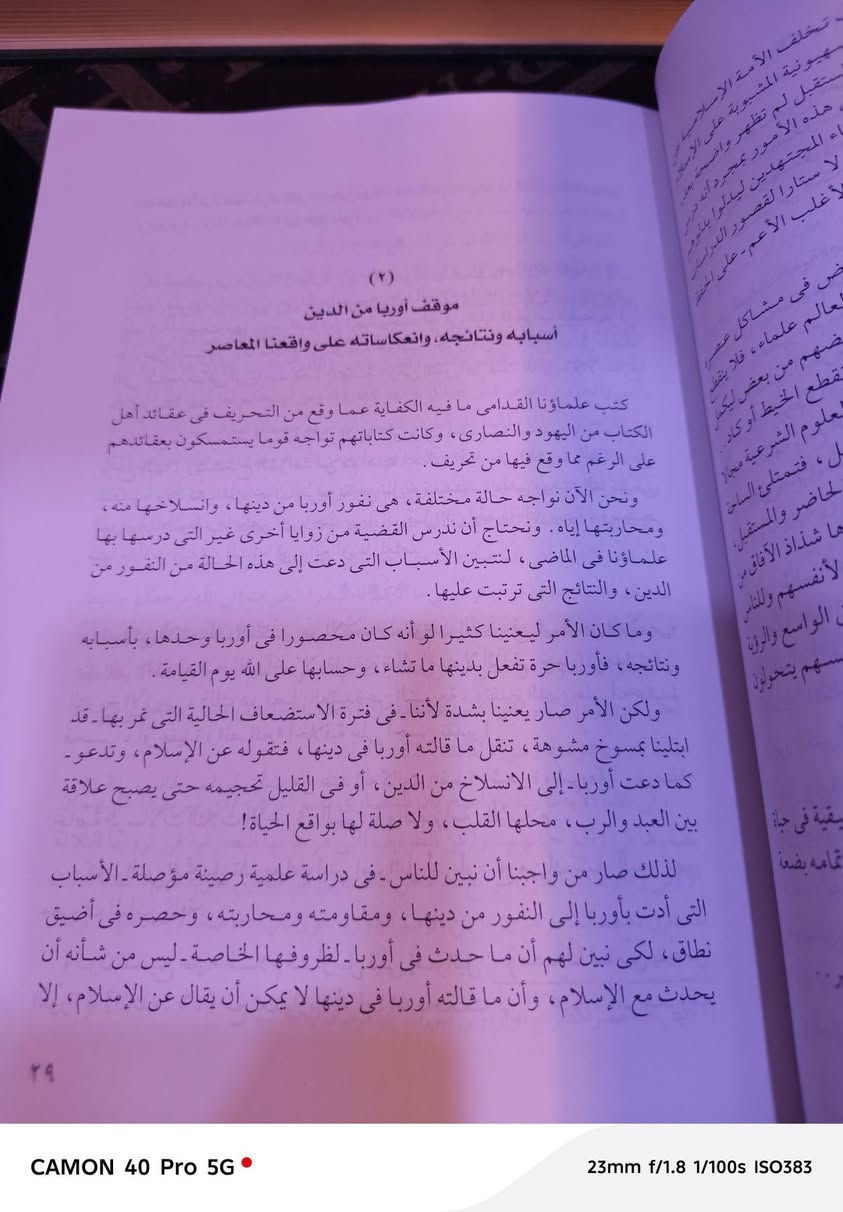 (٢)
موقف أوربا من الدين
أسبابه ونتائجه، وانعكاساته على واقعنا المعاصر
كتب علماؤنا القدامى ما فيه الكفاية عما وقع من التحريف فى عقائد أهل
الكتاب من اليهود والنصارى، وكانت كتاباتهم تواجه قوما يستمسكون بعقائدهم
على الرغم مما وقع فيها من تحريف.
ونحن الآن نواجه حالة مختلفة، هى نفور أوربا من دينها، وانسلاخها منه،
ومحاربتها إياه. ونحتاج أن ندرس القضية من زوايا أخرى غير التى درسها بها
علماؤنا فى الماضى، لنتبين الأسباب التى دعت إلى هذه الحالة من النفور من
الدين، والنتائج التى ترتبت عليها.
وما كان الأمر ليعنينا كثيرا لو أنه كان محصورا فى أوربا وحدها، بأسبابه
ونتائجه، فأوربا حرة تفعل بدينها ما تشاء، وحسابها على الله يوم القيامة.
ولكن الأمر صار يعنينا بشدة لأننا ـ فى فترة الاستضعاف الحالية التى نمر بها ـ قد
ابتلينا بمسوخ مشوهة، تنقل ما قالته أوربا فى دينها، فتقوله عن الإسلام، وتدعو ـ
كما دعت أوربا ـ إلى الانسلاخ من الدين، أو فى القليل تحجيمه حتى يصبح علاقة
بين العبد والرب، محلها القلب، ولا صلة لها بواقع الحياة!
لذلك صار من واجبنا أن نبين للناس ـ فى دراسة علمية رصينة مؤصلة ـ الأسباب
التى أدت بأوربا إلى النفور من دينها، ومقاومته ومحاربته، وحصره فى أضيق
نطاق، لكى نبين لهم أن ما حدث فى أوربا ـ لظروفها الخاصة ـ ليس من شأنه أن
يحدث مع الإسلام، وأن ما قالته أوربا فى دينها لا يمكن أن يقال عن الإسلام، إلا
٢٩
تخلف الأمة الإسلامية
المشبوبة على
ستقبل لم تظهر واضحة
هذه الأمور بمجرد أنه درس
المجتهدين ليدلوا بدلوهم
لا ستارا لقصور الدراسات
لأغلب الأعم ـ على الحفظ
فى مشاكل
لعالم علماء، فلا
من بعض ليكمل
الخيط أو كاد..
لعلوم الشرعية مجالا
فتمتلئ الساحة
لحاضر والمستقبل،
شذاذ الآفاق من
لأنفسهم وللناس
الواسع والرؤية
يتحولون
فى
بضعة
CAMON 40 Pro 5G
23mm f/1.8 1/100s ISO383